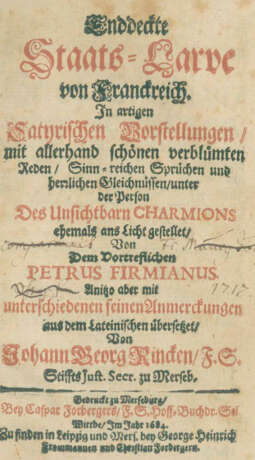 Enddeckte
Staats-Larve
von Franckreich.
In artigen
Satyrischen Vorstellungen/
mit allerhand schönen verblümten
Reden/ Sinn-reichen Sprüchen und
herrlichen Gleichnüssen/unter
der Person
Des Unsichtbarn CHARMIONS
ehemals ans Licht gestellet/
Von
Dem Vortreflichen
PETRUS FIRMIANUS.
Anitzo aber mit
1717
unterschiedenen feinen Anmerckungen
aus dem Lateinischen übersetzet/
Von
Johann Georg Rincken/ F. S.
Stiffts Just. Secr. zu Merseb.
Gedruckt zu Merseburg/
Bey Caspar Forbergers/ F. S. Hoff-Buchdr. Sel.
Wittbe/ Im Jahr 1684.
Zu finden in Leipzig und Mers. bey George Heinrich
Frommannen und Christian Forbergern.